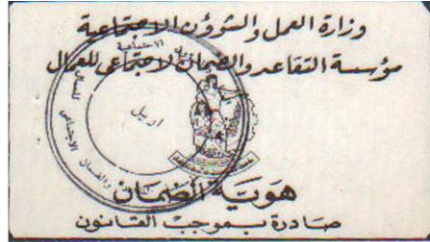 وزارة العمل والشؤون الاجتماعية
مؤسسة التقاعد والضمان الاجتماعي للعمال
اربيل
والضمان الاجتماعي
هوية الضمان
صادرة بموجب القانون